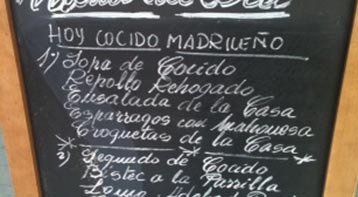 HOY COCIDO MADRILEÑO
1) Sopa de Cocido
Repollo Rehogado
Ensalada de la Casa
Esparragos con Mahonesa
Croquetas de la Casa
2) Segundo de Cocido
Bistec a la Parrilla